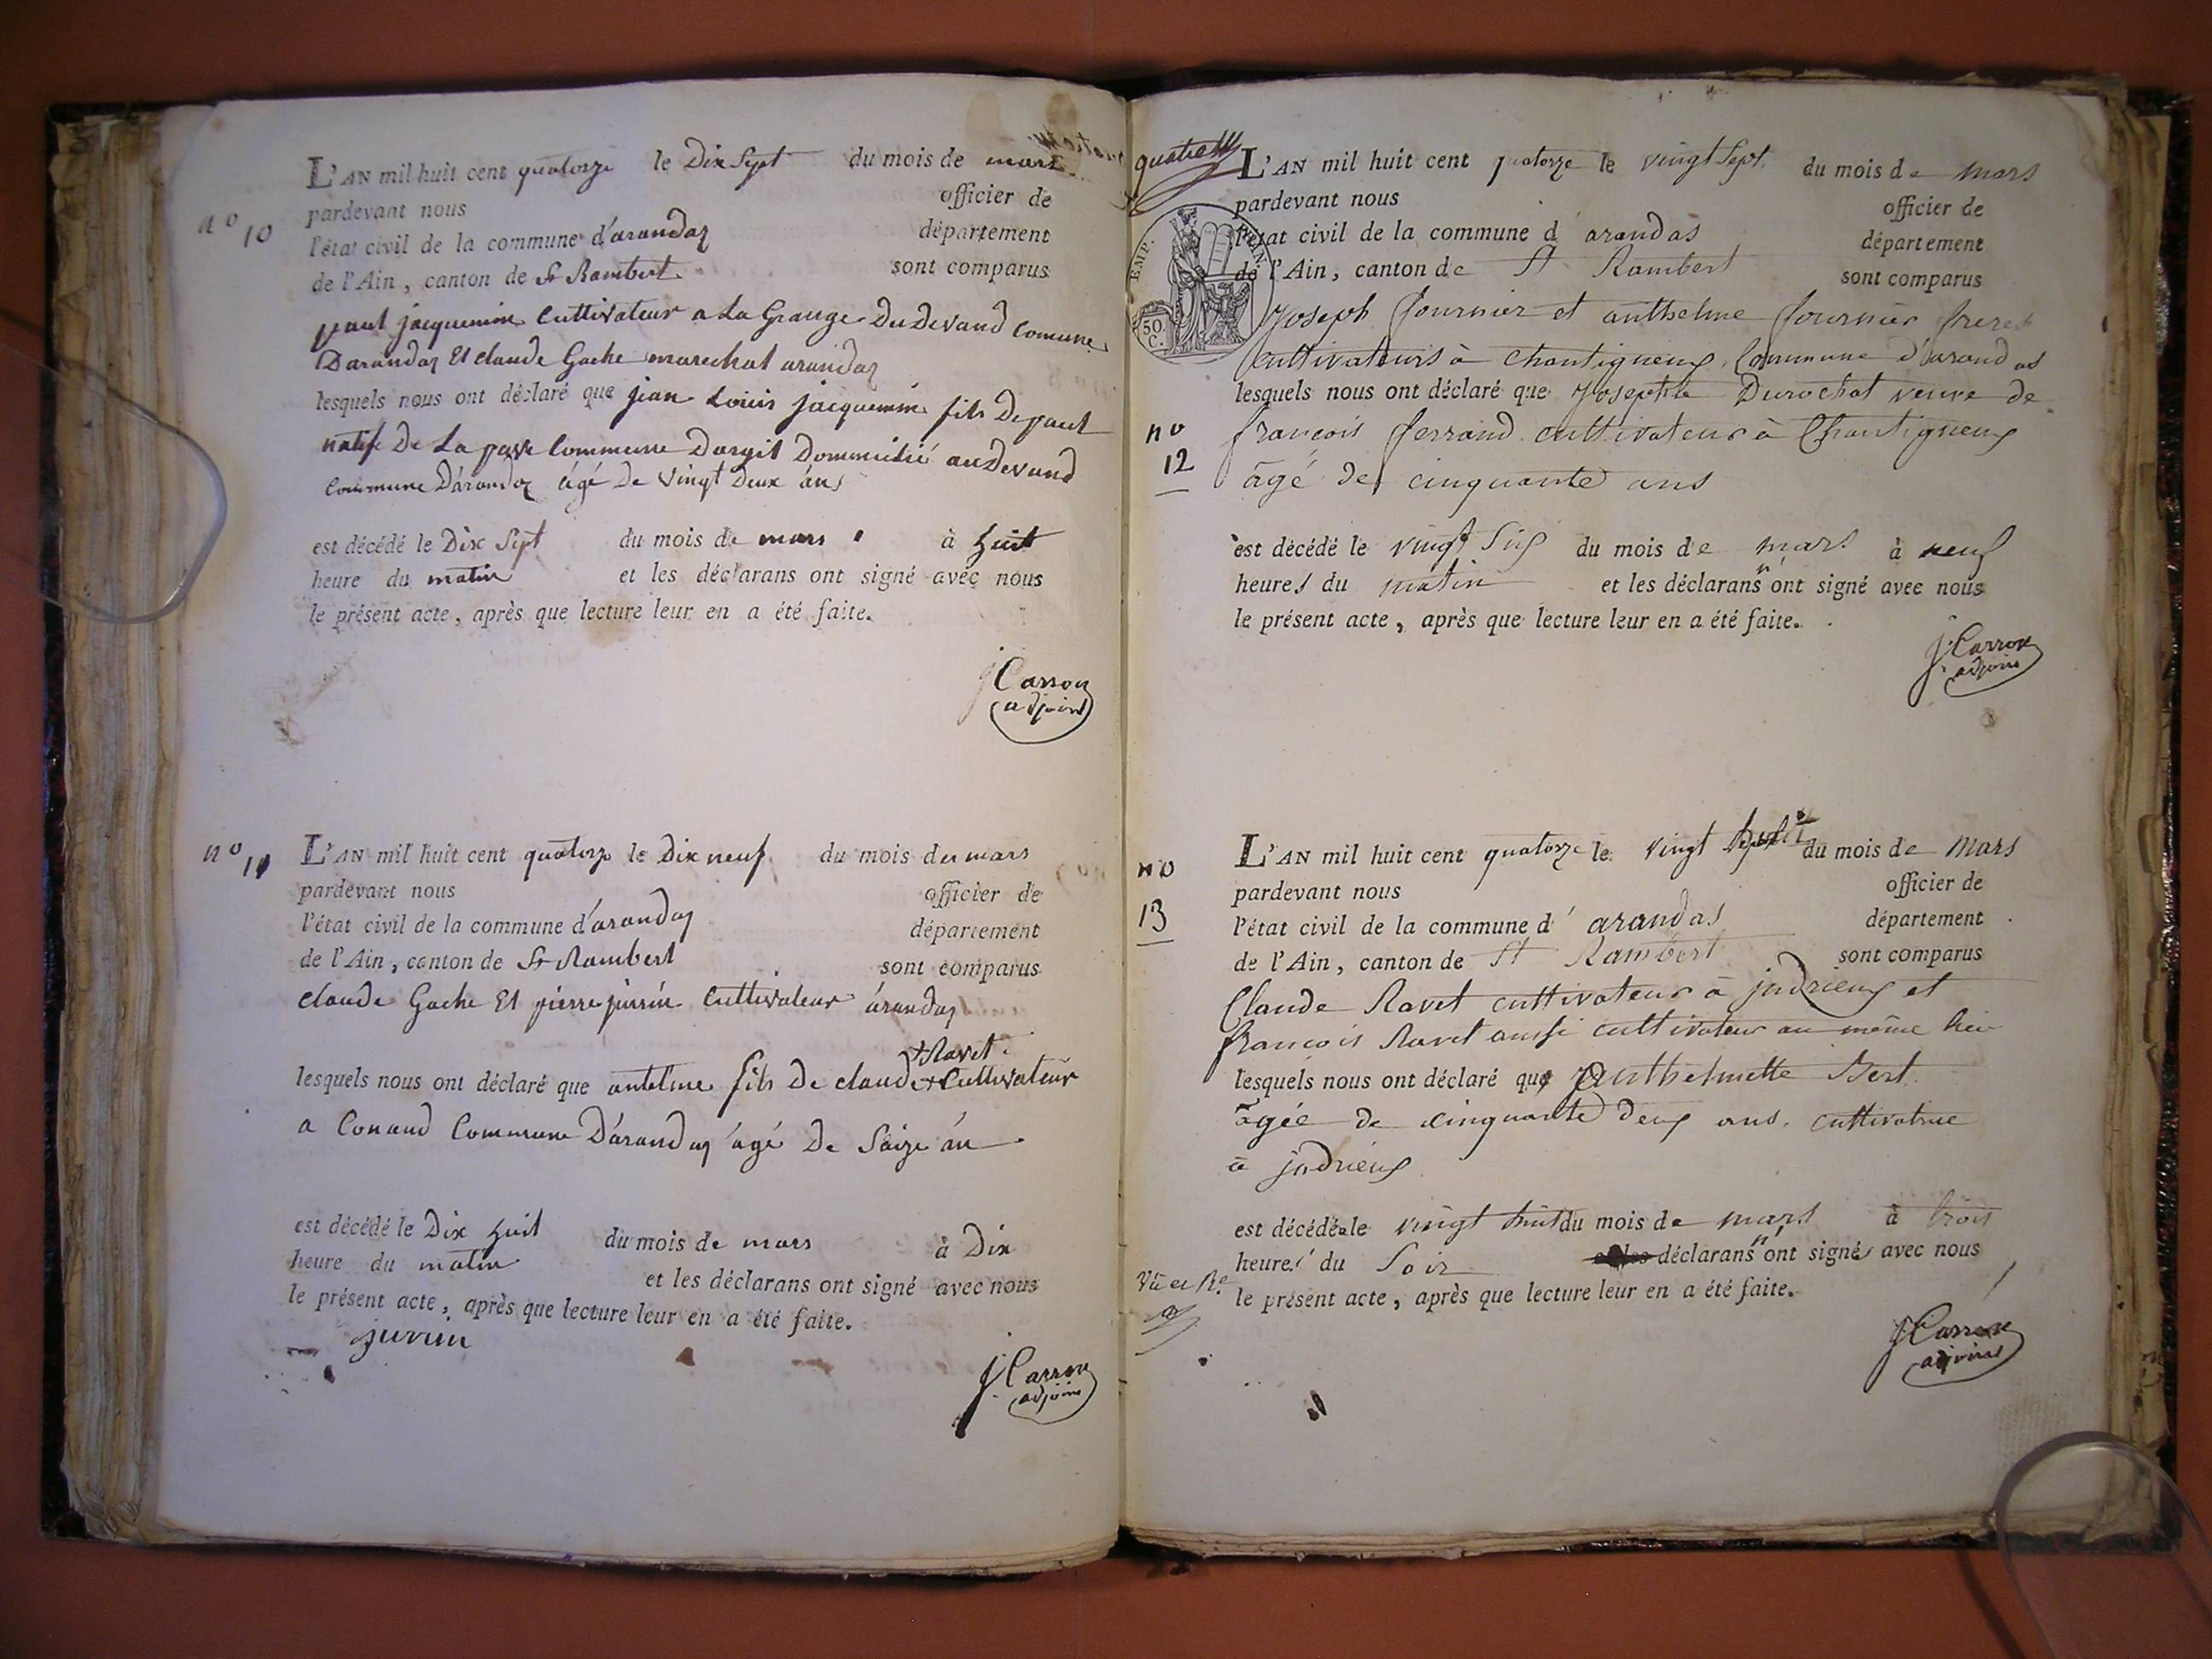 n° 10
L'AN mil huit cent quatorze le Dix Sept du mois de mars
pardevant nous officier de
l'état civil de la commune d'arandaz département
de l'Ain, canton de St Rambert sont comparus
paul jacquemin Cultivateur a La Grange Du Devand Comune
Darandaz Et claude Gache marechal arandaz
lesquels nous ont déclaré que jean Louis jacquemin fils De paul
natif De La paxe Commune Dargit Dommicilié au Devand
Commune Darandaz âgé De Vingt Deux ans
est décédé le Dix Sept du mois de mars à huit
heure du matin et les déclarans ont signé avec nous
le présent acte, après que lecture leur en a été faite.
J Carron
adjoint
n° 11
L'AN mil huit cent quatorze le Dix neuf du mois de mars
pardevant nous officier de
l'état civil de la commune d'arandaz département
de l'Ain, canton de St Rambert sont comparus
claude Gache Et pierre juvin Cultivateur arandaz
+Ravet
lesquels nous ont déclaré que antelme fils De claude + Cultivateur
a Conand Commune Darandaz agé De Saize an
est décédé le Dix huit du mois de mars à Dix
heure du matin et les déclarans ont signé avec nous
le présent acte, après que lecture leur en a été faite.
juvin
J Carron
adjoint
EMP.
50
C.
n° 12
L'AN mil huit cent quatorze le vingt Sept du mois de mars
pardevant nous officier de
l'état civil de la commune d'arandas département
de l'Ain, canton de St Rambert sont comparus
Joseph fournier et anthelme fournier freres
Cultivateurs à Chantigneux Commune d'arandas
lesquels nous ont déclaré que Josephte Durochat veuve de
françois ferrand cultivateur à Chantigneux
âgé de cinquante ans
est décédé le vingt Six du mois de mars à neuf
heures du matin et les déclarans n'ont signé avec nous
le présent acte, après que lecture leur en a été faite.
J Carron
adjoint
n° 13
L'AN mil huit cent quatorze le vingt du mois de Mars
pardevant nous officier de
l'état civil de la commune d'arandas département
de l'Ain, canton de St Rambert sont comparus
Claude Ravet cultivateur à indrieux et
françois Ravet aussi cultivateur au même lieu
lesquels nous ont déclaré que anthelmette Bert
âgée de cinquante deux ans. cultivatrice
à indrieux
est décédée le vingt huit du mois de mars à trois
heures du Soir déclarans n'ont signé avec nous
le présent acte, après que lecture leur en a été faite.
J Carron
adjoint